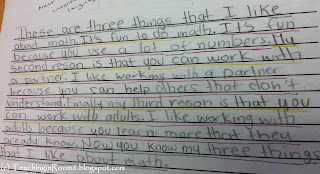 These are three things that I like
about math. It's fun to do math. It's fun
because you use a lot of numbers. My
second reson is that you can work with
a partner. I like working with a partner
because you can help others that don't
understand. Finally my third reson is that you
can work with adults. I like working with
adults because you learn more that they
already know. Now you know my three things
that I like about math.
(c) TeachinginRoom6.blogspot.com